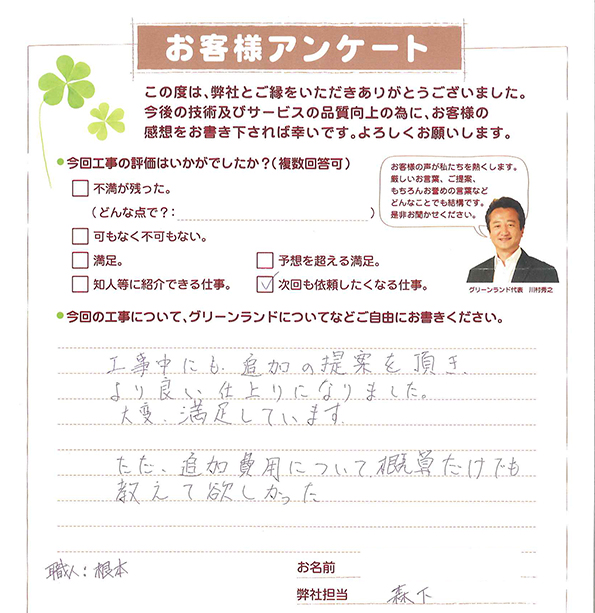 お客様アンケート
この度は、弊社とご縁をいただきありがとうございました。
今後の技術及びサービスの品質向上の為に、お客様の
感想をお書き下されば幸いです。よろしくお願いします。
今回工事の評価はいかがでしたか？（複数回答可）
不満が残った。
（どんな点で？： ）
可もなく不可もない。
満足。
予想を超える満足。
知人等に紹介できる仕事。
次回も依頼したくなる仕事。
お客様の声が私たちを熱くします。
厳しいお言葉、ご提案、
もちろんお誉めの言葉など
どんなことでも結構です。
是非お聞かせください。
グリーンランド代表 川村秀之
今回の工事について、グリーンランドについてなどご自由にお書きください。
工事中にも、追加の提案を頂き、
より良い仕上りになりました。
大変、満足しています。
ただ、追加費用について、概算だけでも
教えて欲しかった
職人：根本
お名前
弊社担当 森下